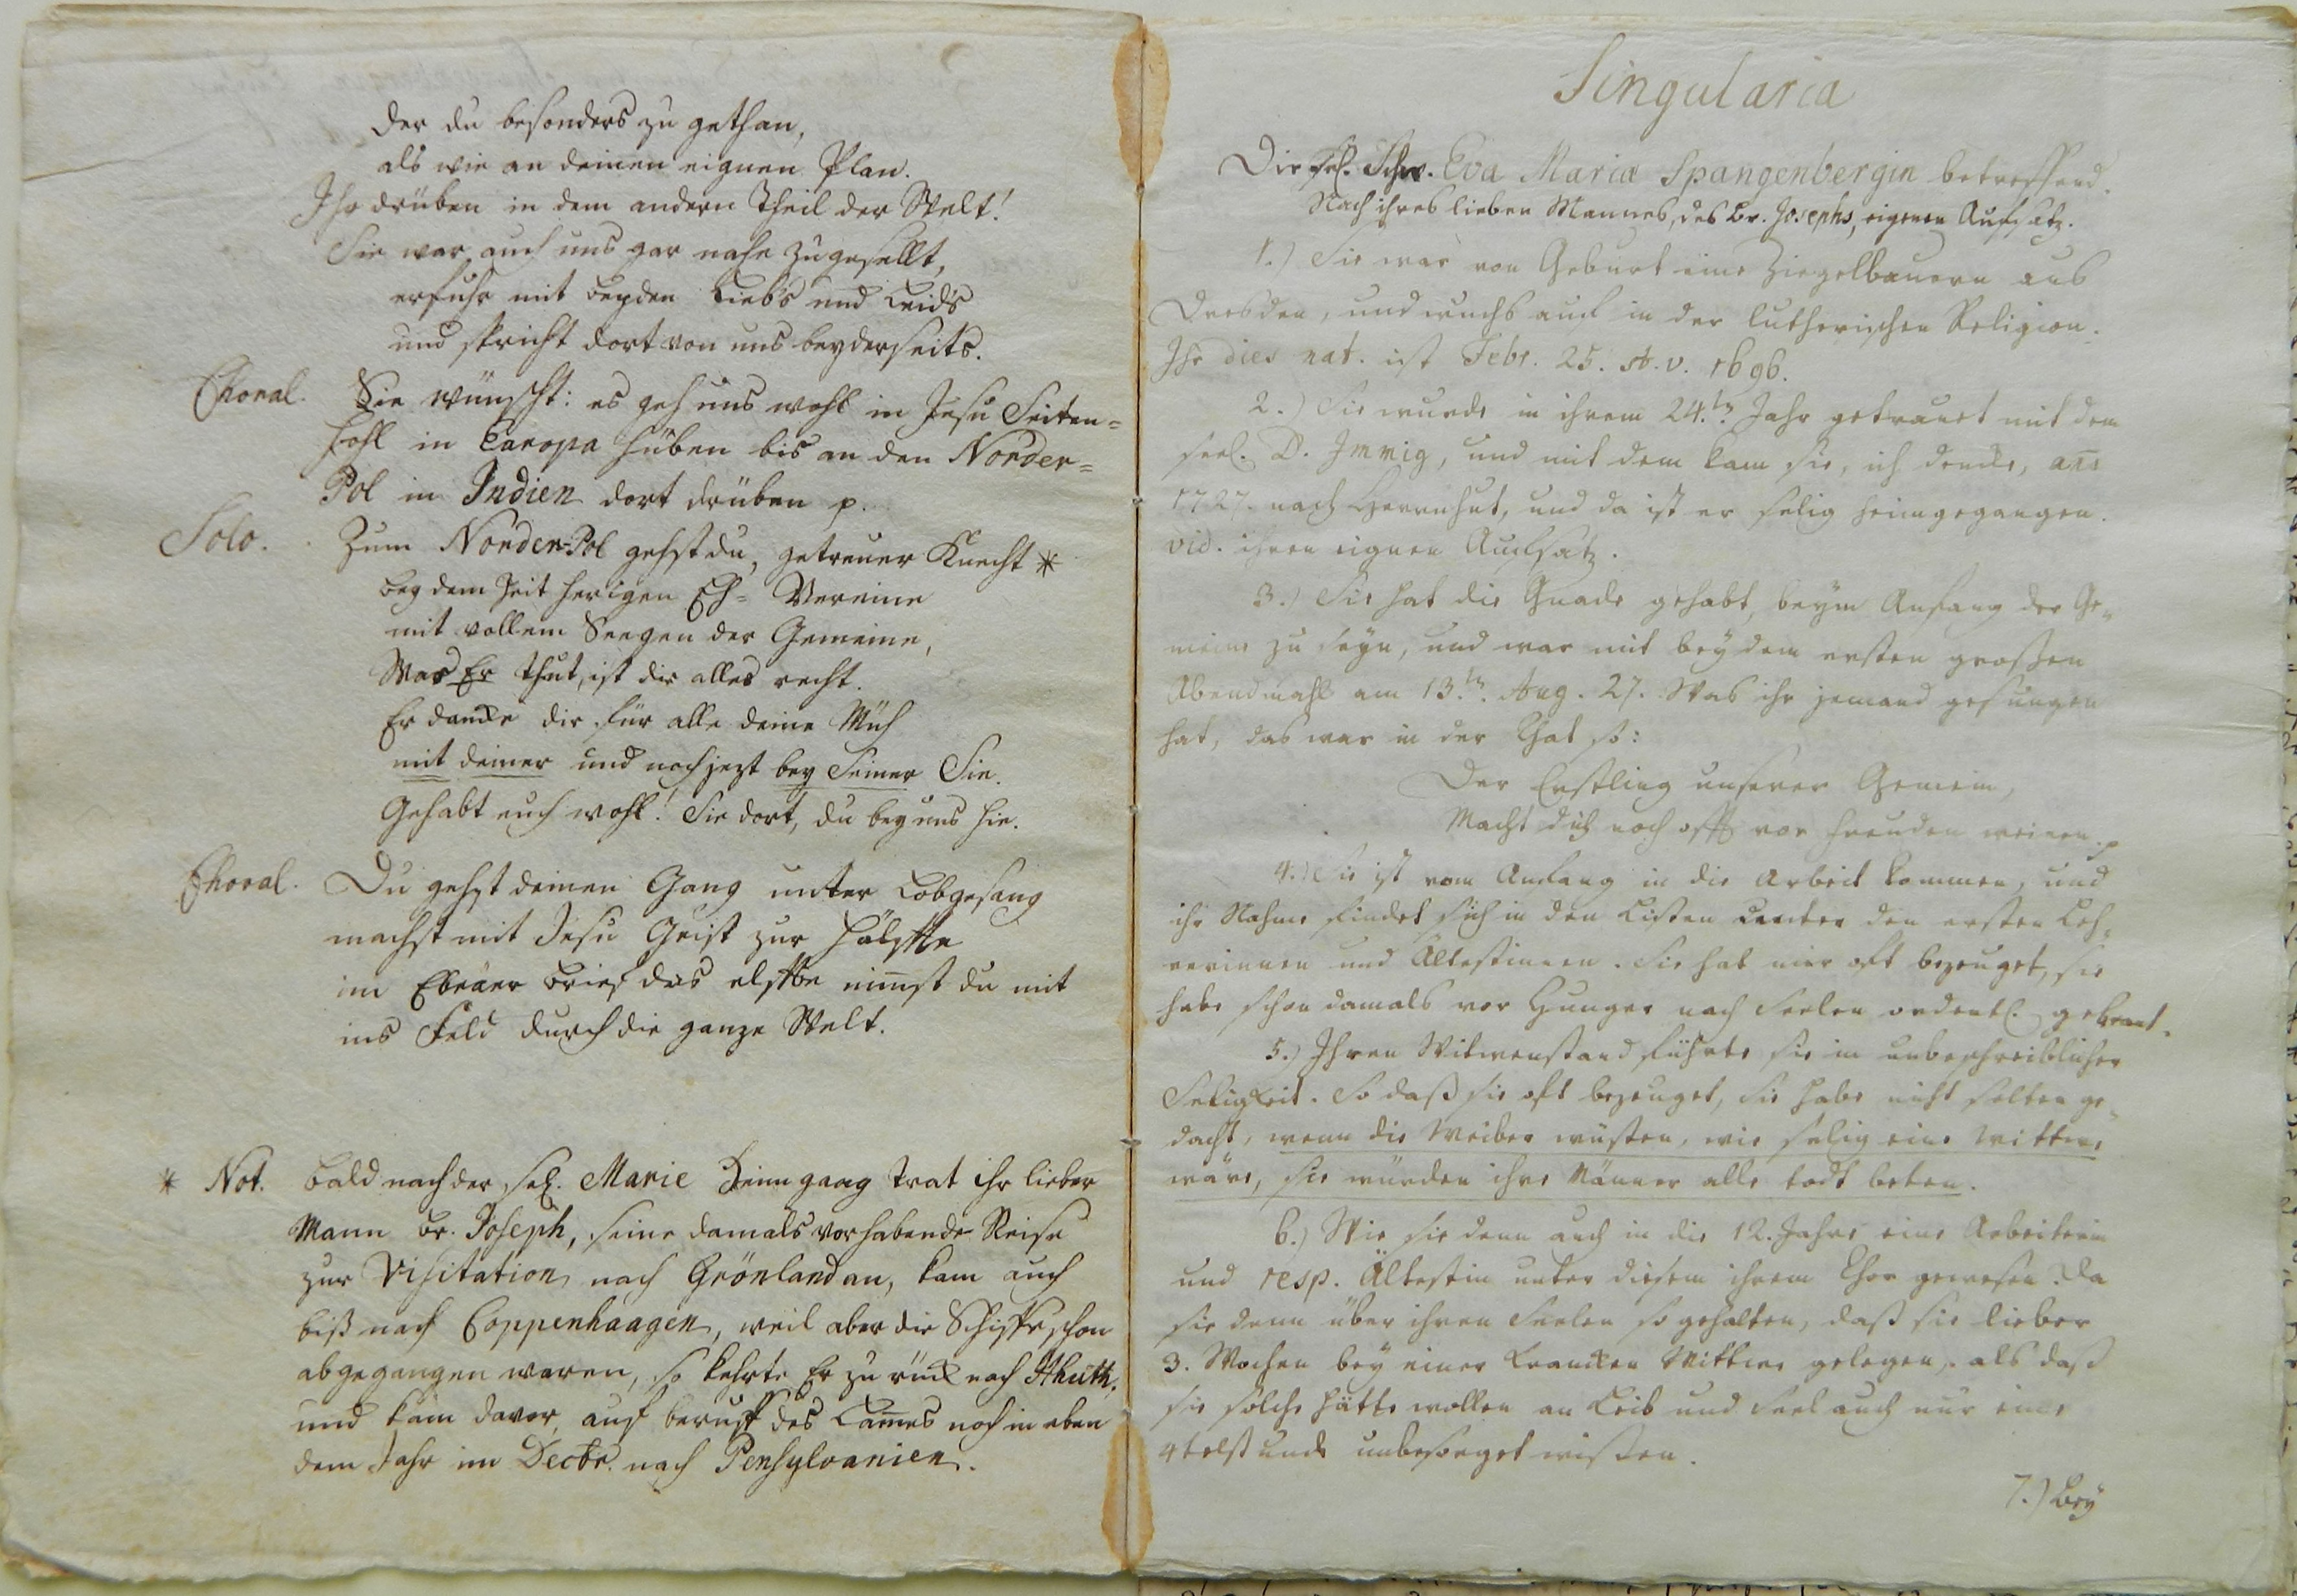 der du besonders zu gethan,
als wie an deinen eignen Plan.
Ihr drüben in dem andern Theil der Welt!
Sie war auch uns gar nahe zugesellt,
erfuhr mit beyden Liebs und Leids
und spricht dort von uns beyderseits.
Choral. Sie wünscht: es geh uns wohl in Jesu Seiten=
hohl in Europa hüben bis an den Norder=
Pol in Indien dort drüben p.
Solo. Zum Norder-Pol gehst du, getreuer Knecht *
bey dem Zeit herigen Eh= Vereine
mit vollem Seegen der Gemeine,
Was Er thut, ist dir alles recht.
Er dancke dir für alle deine Müh
mit deiner und noch jezt bey Seiner Sie.
Gehabt euch wohl! Sie dort, du bey uns hie.
Choral. Du gehst deinen Gang unter Lobgesang
machst mit Jesu Geist zur Hälffte
im Ebräer Brief das elffte nimst du mit
ins Feld durch die ganze Welt.
* Not. Bald nach der sel. Marie Heimgang trat ihr lieber
Mann Br. Joseph, seine damals vorhabende Reise
zur Visitation nach Grönland an, kam auch
biß nach Coppenhaagen, weil aber die Schiffe schon
abgegangen waren, so kehrte Er zurück nach Hhuth.
und kam davor auf beruff des Lames noch in eben
dem Jahr im Decbr. nach Pensylvanien.
Singularia
Die sel. Schw. Eva Maria Spangenbergin betreffend.
Nach ihres lieben Mannes, des Br. Josephs, eigenen Aufsatz.
1.) Sie war von Geburt eine Ziegelbauern aus
Dresden, und wuchs auf in der lutherischen Religion.
Ihr dies nat. ist Febr. 25. st. v. 1696.
2.) Sie wurde in ihrem 24.tn Jahr getrauet mit dem
seel. D. Immig, und mit dem kam sie, ich dencke, an̄o
1727. nach Herrnhut, und da ist er selig heimgegangen.
vid. ihren eignen Auffsatz.
3.) Sie hat die Gnade gehabt, beym Anfang der Ge=
meine zu seyn, und war mit bey dem ersten großen
Abendmahl am 13.tn Aug. 27. Was ihr jemand gesungen
hat, das war in der That so:
Der Erstling unserer Gemein,
Macht dich noch offt vor Freuden weinen. p
4.) Sie ist vom Anfang in die Arbeit kommen, und
ihr Nahme findet sich in den Listen unter den ersten Leh=
rerinnen und Ältestinnen. Sie hat mir oft bezeuget, sie
habe schon damals vor Hunger nach Seelen ordentl. gebrant.
5.) Ihren Witwenstand führte sie in unbeschreiblicher
Seligkeit. So daß sie oft bezeuget, sie habe nicht selten ge=
dacht, wenn die Weiber wüsten, wie selig eine Wittwe
wäre, sie würden ihre Männer alle todt beten.
6.) Wie sie denn auch in die 12. Jahre eine Arbeiterin
und resp. Ältestin unter diesem ihrem Chor gewesen. Da
sie denn über ihren Seelen so gehalten, daß sie lieber
3. Wochen bey einer krancken Wittwe gelegen, als daß
sie solche hätte wollen an Leib und Seel auch nur eine
4telstunde unbesorget wißen.
7.) Bey